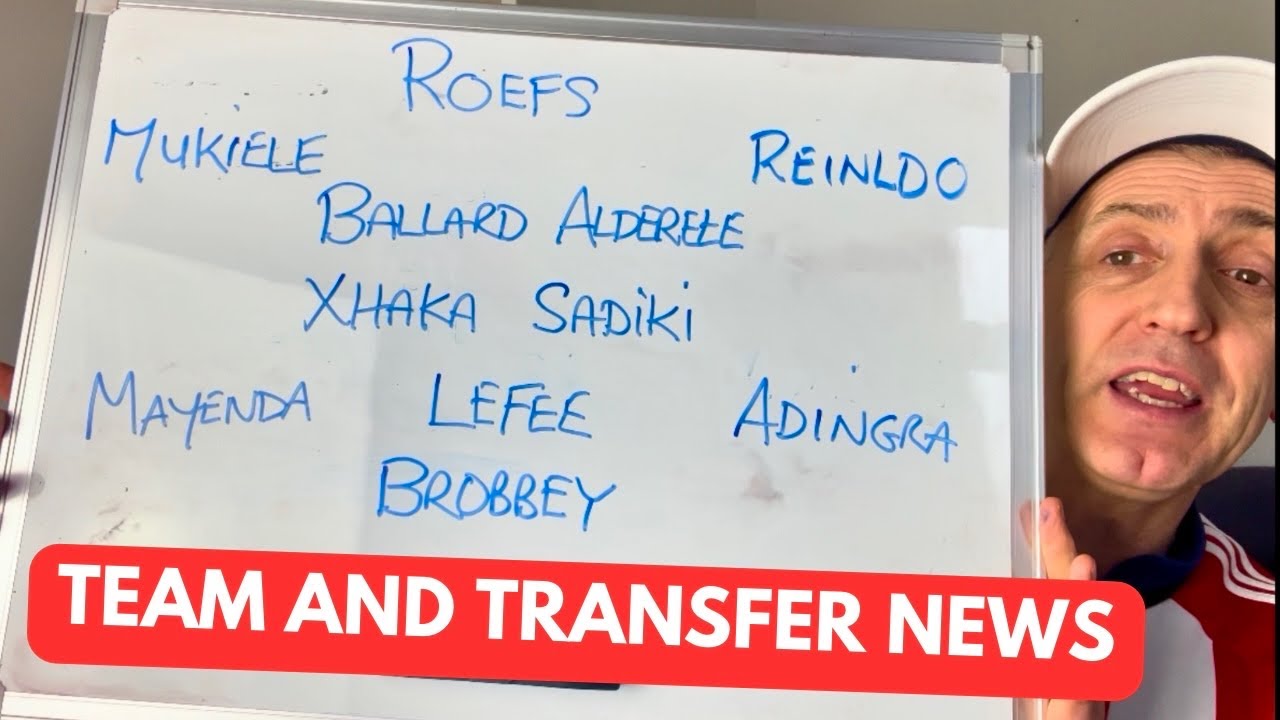 ROEFS
MUKIELE
REINLDO
BALLARD ALDERETE
XHAKA SADIKI
MAYENDA LEFEE ADINGRA
BROBBEY
TEAM AND TRANSFER NEWS